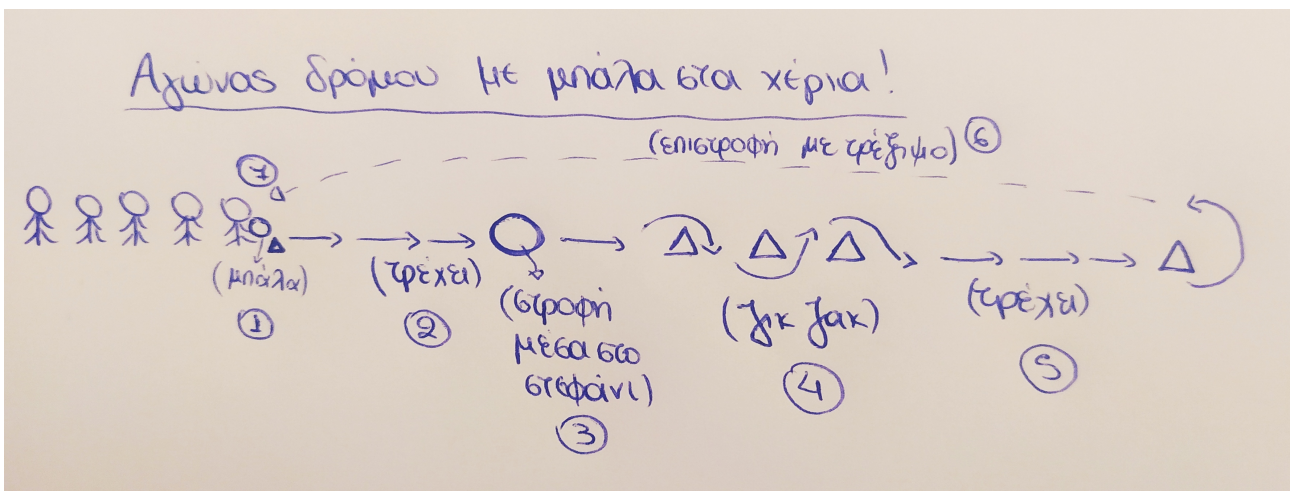 Αγώνας δρόμου με μπάλα στα χέρια!
(επιστροφή με τρέξιμο) 6
7
(μπάλα)
1
(τρέχει)
2
(στροφή
μέσα στο
στεφάνι)
3
(ζικ ζακ)
4
(τρέχει)
5